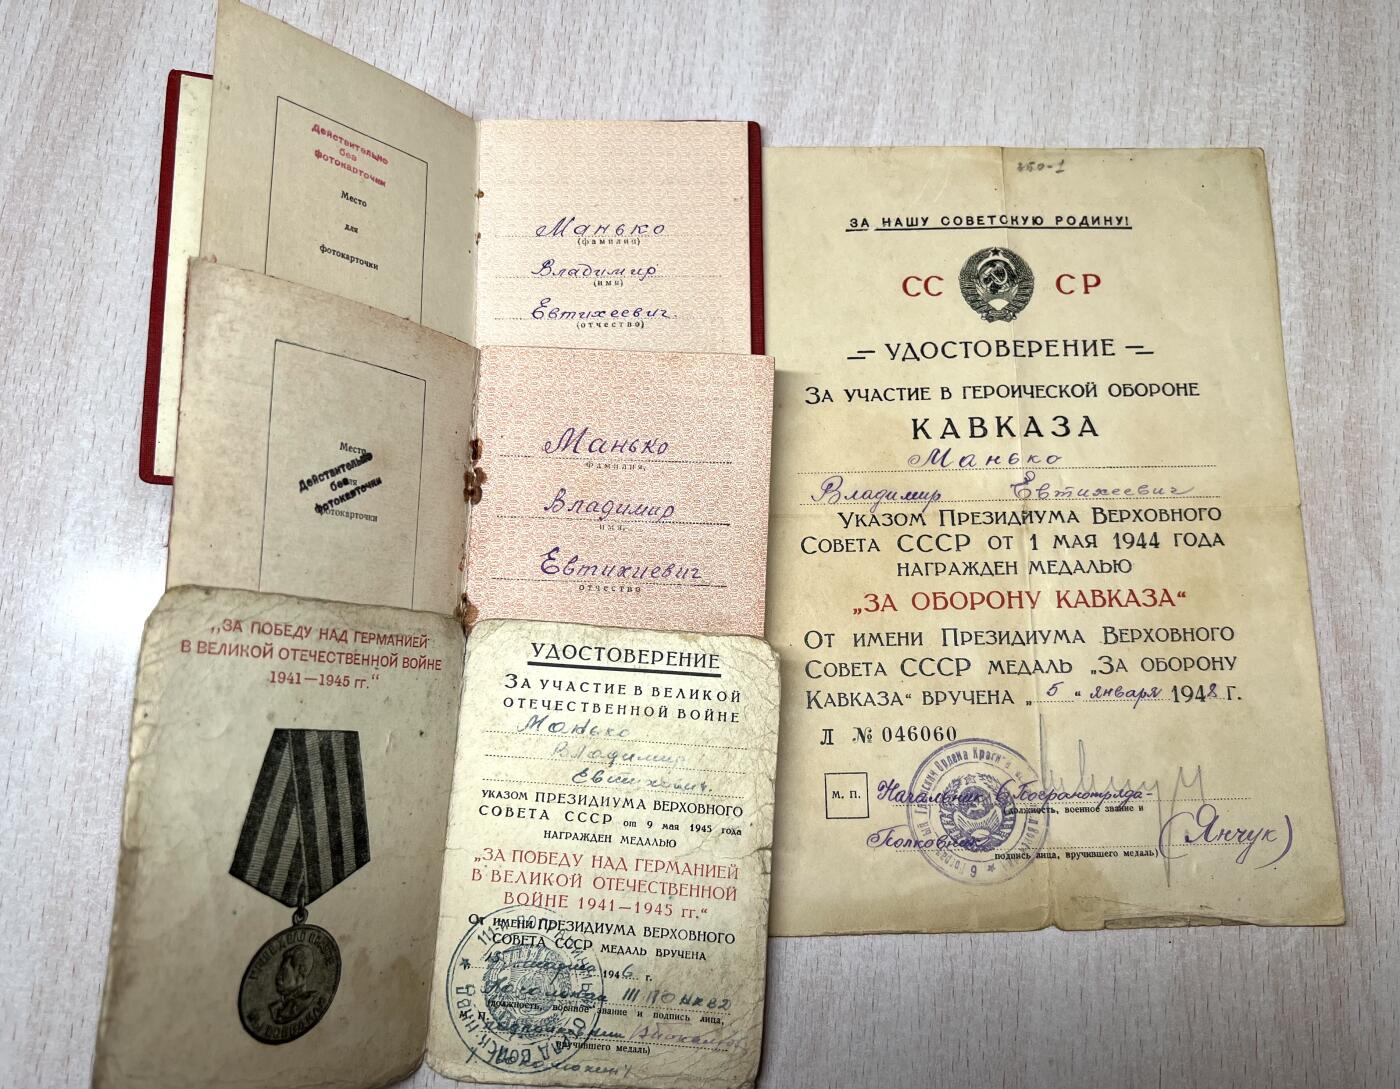 Действительно
без
фотокарточки
Место
для
фотокарточки
Манько
(фамилия)
Владимир
(имя)
Евтихеевич
(отчество)
Место
Действительно
без
фотокарточки
фотокарточки
Манько
фамилия,
Владимир
имя,
Евтихиевич
отчество
„ЗА ПОБЕДУ НАД ГЕРМАНИЕЙ
В ВЕЛИКОЙ ОТЕЧЕСТВЕННОЙ ВОЙНЕ
1941—1945 гг.“
УДОСТОВЕРЕНИЕ
ЗА УЧАСТИЕ В ВЕЛИКОЙ
ОТЕЧЕСТВЕННОЙ ВОЙНЕ
Манько
Владимир
Евтихевич
УКАЗОМ ПРЕЗИДИУМА ВЕРХОВНОГО
СОВЕТА СССР от 9 мая 1945 года
НАГРАЖДЕН МЕДАЛЬЮ
„ЗА ПОБЕДУ НАД ГЕРМАНИЕЙ
В ВЕЛИКОЙ ОТЕЧЕСТВЕННОЙ
ВОЙНЕ 1941—1945 гг.“
От имени ПРЕЗИДИУМА ВЕРХОВНОГО
СОВЕТА СССР МЕДАЛЬ ВРУЧЕНА
15 марта 1946 г.
(должность, военное звание и подпись лица,
М. П.
вручившего медаль)
350-1
ЗА НАШУ СОВЕТСКУЮ РОДИНУ!
СС СР
УДОСТОВЕРЕНИЕ
ЗА УЧАСТИЕ В ГЕРОИЧЕСКОЙ ОБОРОНЕ
КАВКАЗА
Манько
Владимир Евтихеевич
УКАЗОМ ПРЕЗИДИУМА ВЕРХОВНОГО
СОВЕТА СССР ОТ 1 МАЯ 1944 ГОДА
НАГРАЖДЕН МЕДАЛЬЮ
„ЗА ОБОРОНУ КАВКАЗА“
ОТ ИМЕНИ ПРЕЗИДИУМА ВЕРХОВНОГО
СОВЕТА СССР МЕДАЛЬ „ЗА ОБОРОНУ
КАВКАЗА“ ВРУЧЕНА „5“ января 1948 г.
Л № 046060
М. П.
Начальник 6 Погранотряда
(должность, военное звание и
Полковник
подпись лица, вручившего медаль)
(Янчук)